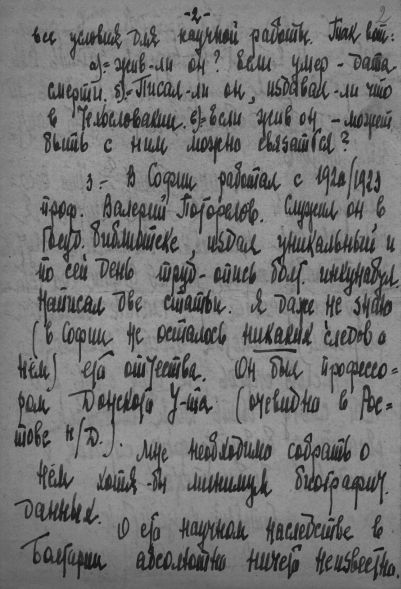 -2-
2
все условия для научной работы. Так вот:
а)= жив-ли он? Если умер - дата
смерти. б)=Писал-ли он, издавал-ли что
в Чехословакии. в)=Если жив он - может
быть с ним можно связаться?
3.= В Софии работал с 1920/1923
проф. Валерий Погорелов. Служил он в
Госуд. библиотеке, издал уникальный и
по сей день труд-опись болг. инкунабул.
Написал две статьи. Я даже не знаю
(в Софии не осталось никаких следов о
нём) его отчества. Он был профессо=
ром Донского У-та (очевидно в Рос=
тове н/Д.). Мне необходимо собрать о
нём хотя-бы минимум биографич.
данных.
О его научном наследстве в
Болгарии абсолютно ничего неизвестно.